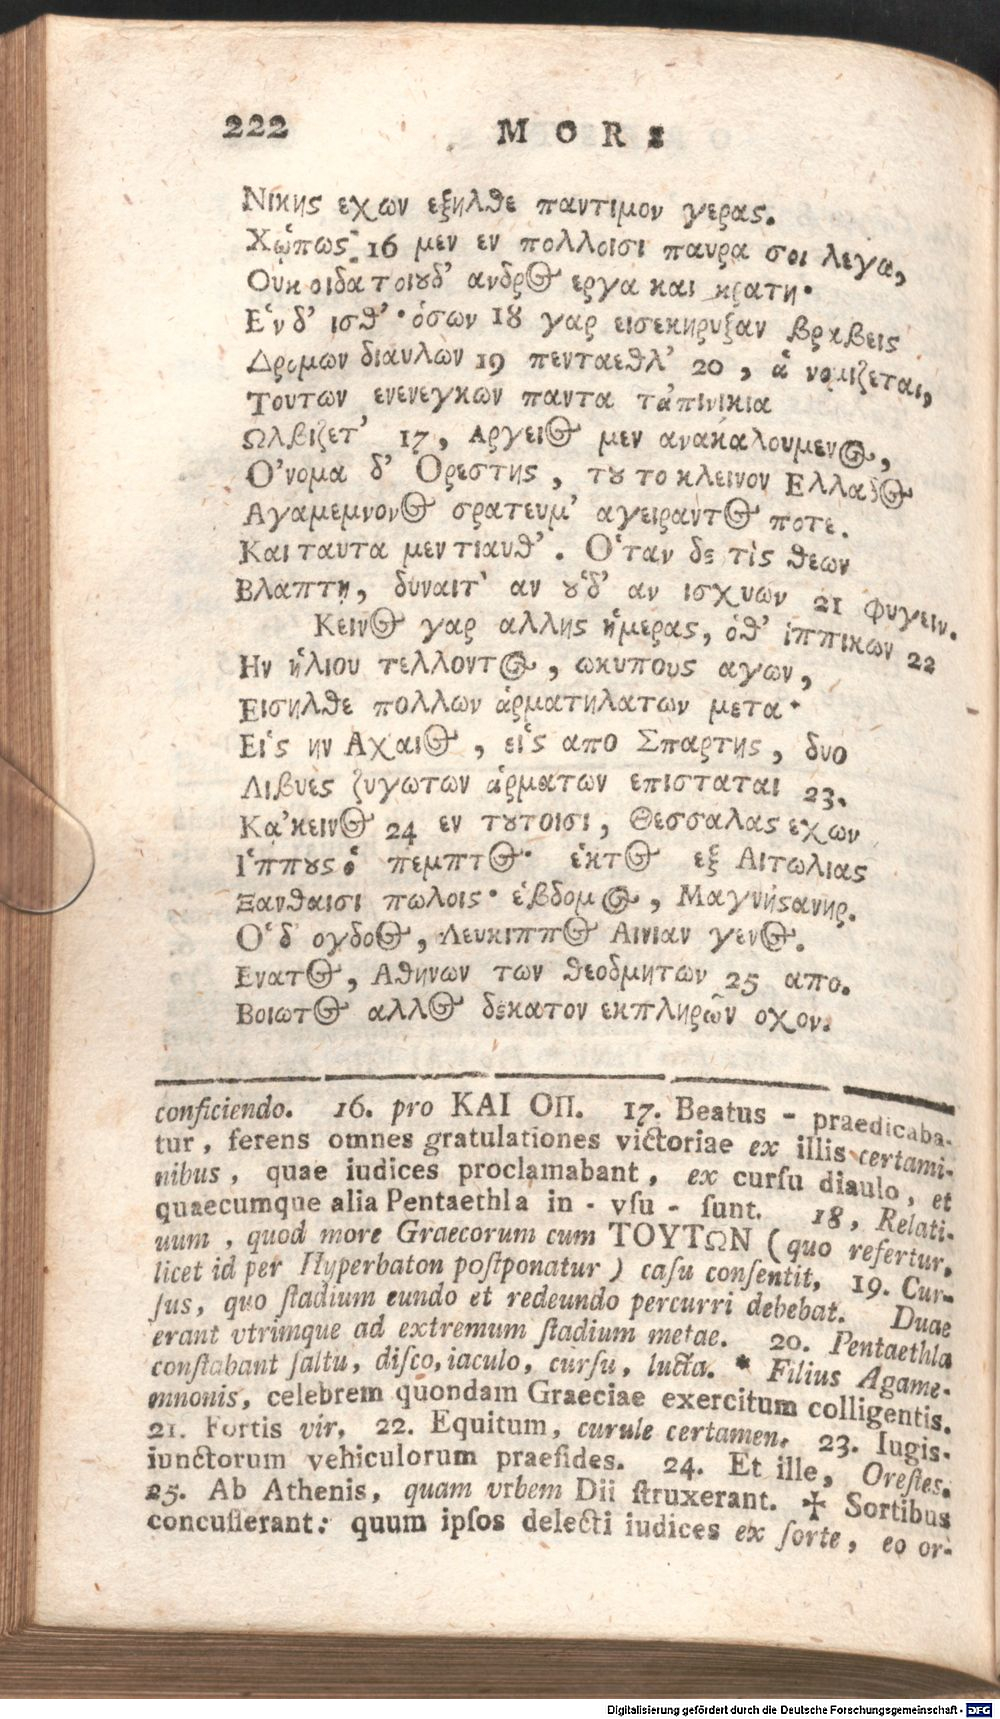 222 MORS
Νικης εχων εξηλθε παντιμον γερας.
Χᾡπως 16 μεν εν πολλοισι παυρα σοι λεγω,
Ουκ οιδα τοιουδ' ανδρος εργα και κρατη·
Ἑν δ' ισθ'· ὁσων 18 γαρ εισεκηρυξαν βραβεις
Δρομων διαυλων 19 πενταεθλ' 20, ἁ νομιζεται,
Τουτων ενενεγκων παντα τἀπινικια
Ωλβιζετ' 17, Αργειος μεν ανακαλουμενος,
Ὀνομα δ' Ορεστης, του το κλεινον Ελλαδος
Αγαμεμνονος στρατευμ' αγειραντος ποτε.
Και ταυτα μεν τιαυθ'. Ὁταν δε τις θεων
Βλαπτῃ, δυναιτ' αν ουδ' αν ισχυων 21 φυγειν.
Κεινος γαρ αλλης ἡμερας, ὁθ' ἱππικων 22
Ην ἡλιου τελλοντος, ωκυπους αγων,
Εισηλθε πολλων ἁρματηλατων μετα·
Εἱς ην Αχαιος, εἱς απο Σπαρτης, δυο
Λιβυες ζυγωτων ἁρματων επισταται 23.
Κᾀκεινος 24 εν τουτοισι, Θεσσαλας εχων
Ἱππους ὁ πεμπτος· ἑκτος εξ Αιτωλιας
Ξανθαισι πωλοις· ἑβδομος, Μαγνης ανηρ.
Ὁ δ' ογδοος, Λευκιππος Αινιαν γενος.
Ενατος, Αθηνων των θεοδμητων 25 απο.
Βοιωτος αλλος δεκατον εκπληρῶν οχον.
conficiendo. 16. pro ΚΑΙ ΟΠ. 17. Beatus - praedicaba-
tur, ferens omnes gratulationes victoriae ex illis certami-
nibus, quae iudices proclamabant, ex cursu diaulo, et
quaecumque alia Pentaethla in - vsu - sunt. 18, Relati-
uum, quod more Graecorum cum ΤΟΥΤΩΝ (quo refertur,
licet id per Hyperbaton postponatur) casu consentit, 19. Cur-
sus, quo stadium eundo et redeundo percurri debebat. Duae
erant vtrimque ad extremum stadium metae. 20. Pentaethla
constabant saltu, disco, iaculo, cursu, lucta. * Filius Agame-
mnonis, celebrem quondam Graeciae exercitum colligentis.
21. Fortis vir. 22. Equitum, curule certamen. 23. Iugis-
iunctorum vehiculorum praesides. 24. Et ille, Orestes.
25. Ab Athenis, quam vrbem Dii struxerant. ✢ Sortibus
concusserant: quum ipsos delecti iudices ex sorte, eo or-
Digitalisierung gefördert durch die Deutsche Forschungsgemeinschaft - DFG